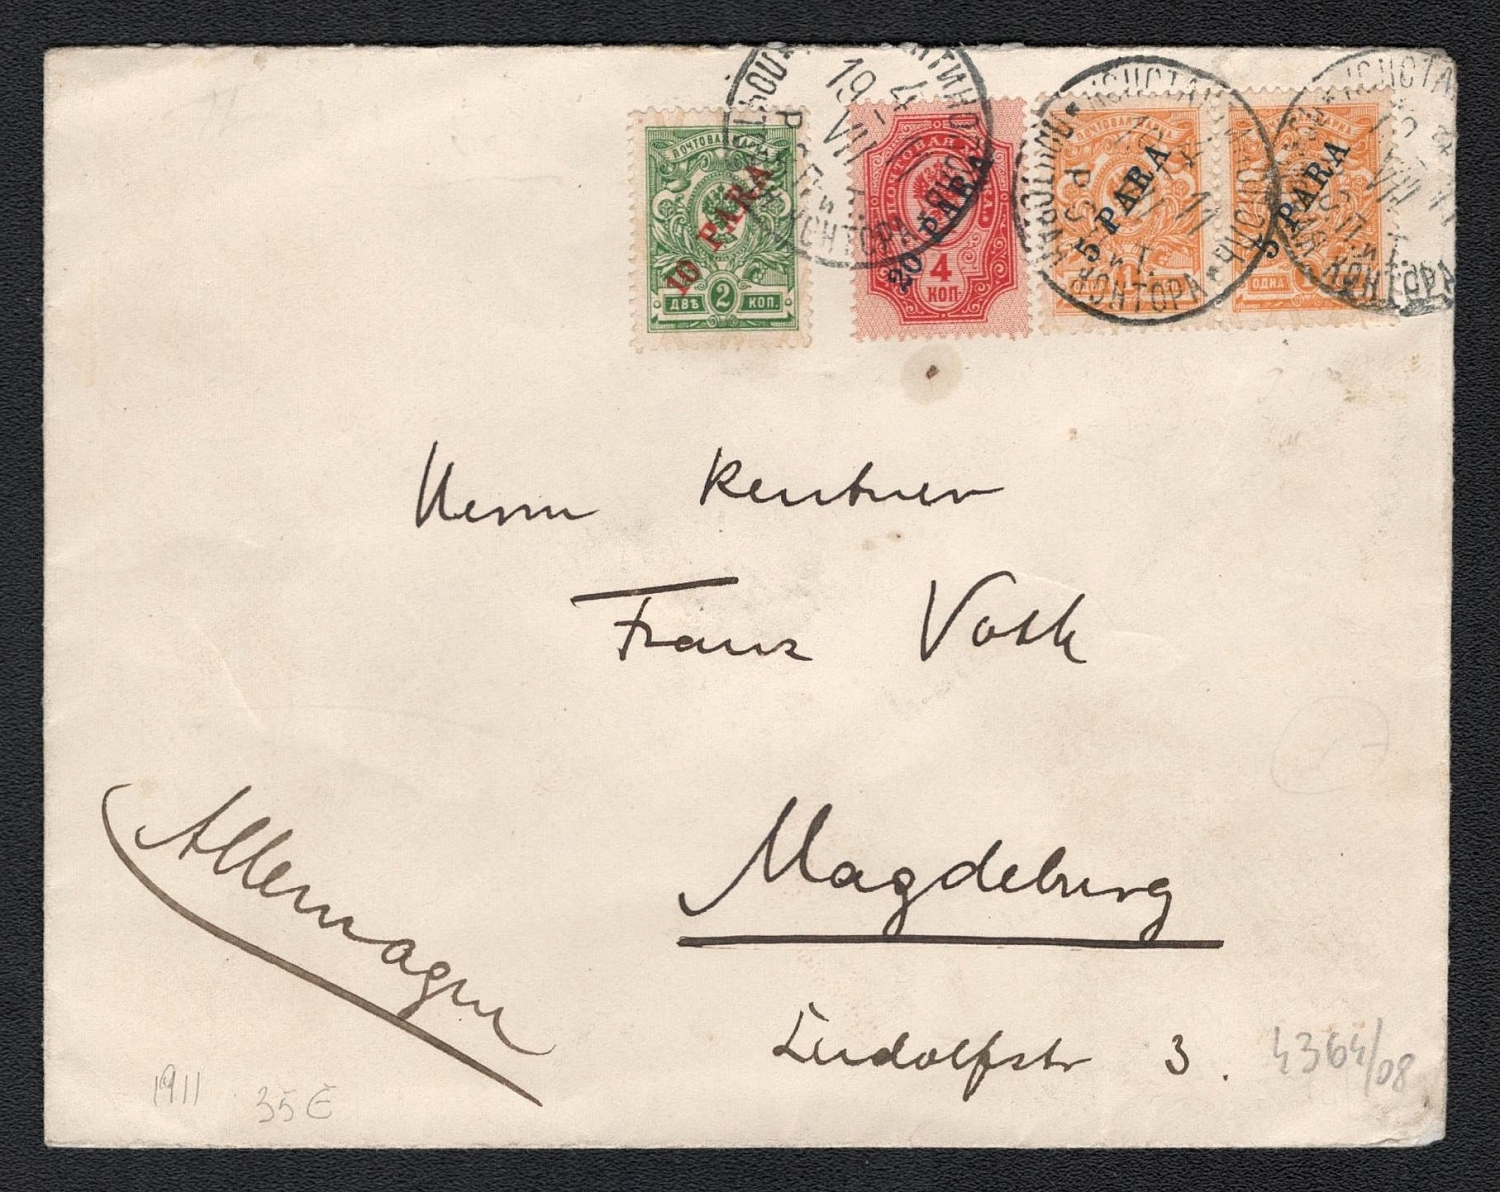 ПОЧТОВАЯ МАРКА
10 PARA
ДВѢ 2 КОП.
ПОЧТОВАЯ МАРКА
20 PARA
4
КОП
ПОЧТОВАЯ МАРКА
5 PARA
5 PARA
ОДНА
КОНТОРА
КОНТОРА
КОНТОРА
Herrn Rentner
Franz Voth
Allemagne
Magdeburg
Ludolfstr 3.
4364/08
1911
35 E